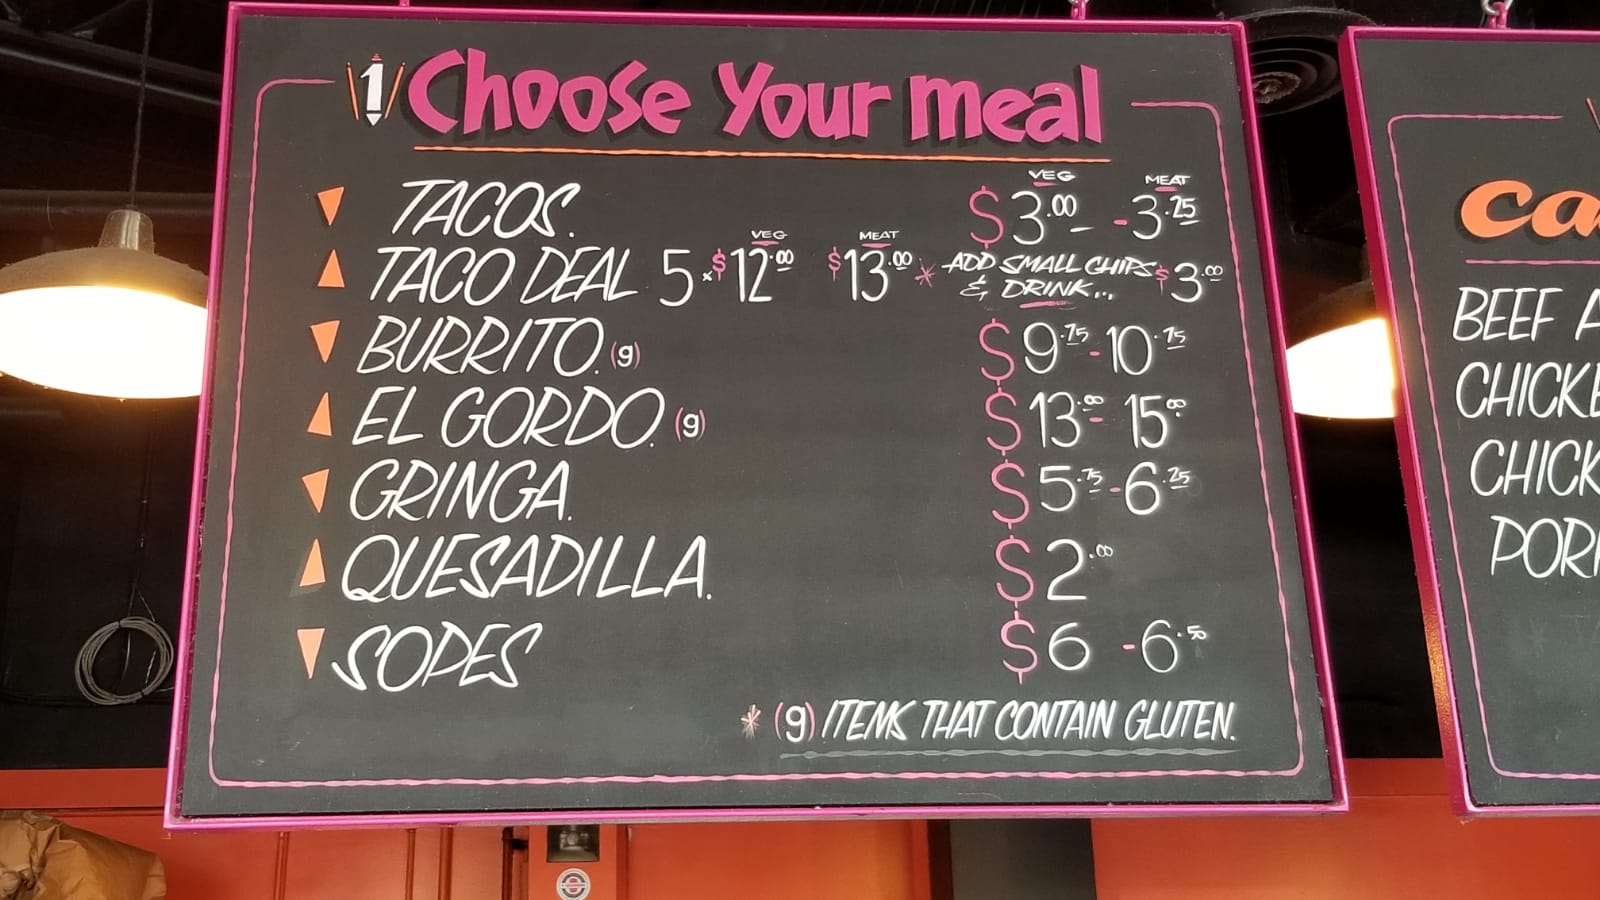 1 Choose Your meal
VEG MEAT
TACOS. $3.00 - 3.25
VEG MEAT
TACO DEAL 5 x $12.00 $13.00 * ADD SMALL CHIPS & DRINK... $3.00
BURRITO. (g) $9.75 - 10.75
EL GORDO. (g) $13.00 - 15.00
GRINGA. $5.75 - 6.25
QUESADILLA. $2.00
SOPES $6 - 6.50
* (g) ITEMS THAT CONTAIN GLUTEN.
BEEF